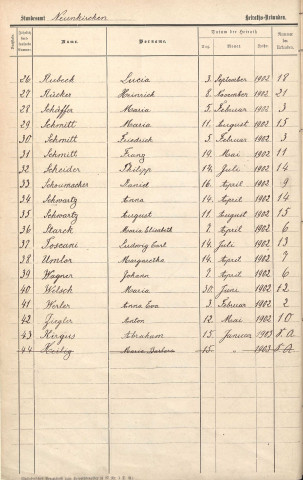 Standesamt Neunkirchen Heiraths-Urkunden
Name. Vorname. Datum der Heirath
Tag. Monat. Jahr.
26 Rubeck Lucia 3. September 1902 18
27 Rücker Heinrich 8. November 1902 21
28 Schäffer Maria 5. Februar 1902 3
29 Schmitt Maria 11. August 1902 15
30 Schmitt Friedrich 5. Februar 1902 3
31 Schmitt Franz 19. Mai 1902 11
32 Schneider Philipp 14. Juli 1902 14
33 Schoumacher Daniel 16. April 1902 9
34 Schwartz Anna 14. April 1902 14
35 Schwartz August 11. August 1902 15
36 Starck Maria Elisabeth 7. April 1902 6
37 Toscani Ludwig Carl 14. Juli 1902 13
38 Umler Margaretha 14. April 1902 7
39 Wagner Johann 7. April 1902 6
40 Welsch Maria 30. Juni 1902 12
41 Werler Anna Eva 3. Februar 1902 2
42 Ziegler Anton 12. Mai 1902 10
43 Kirgus Abraham 15. Januar 1903
44 Maria Barbara 15. " 1903